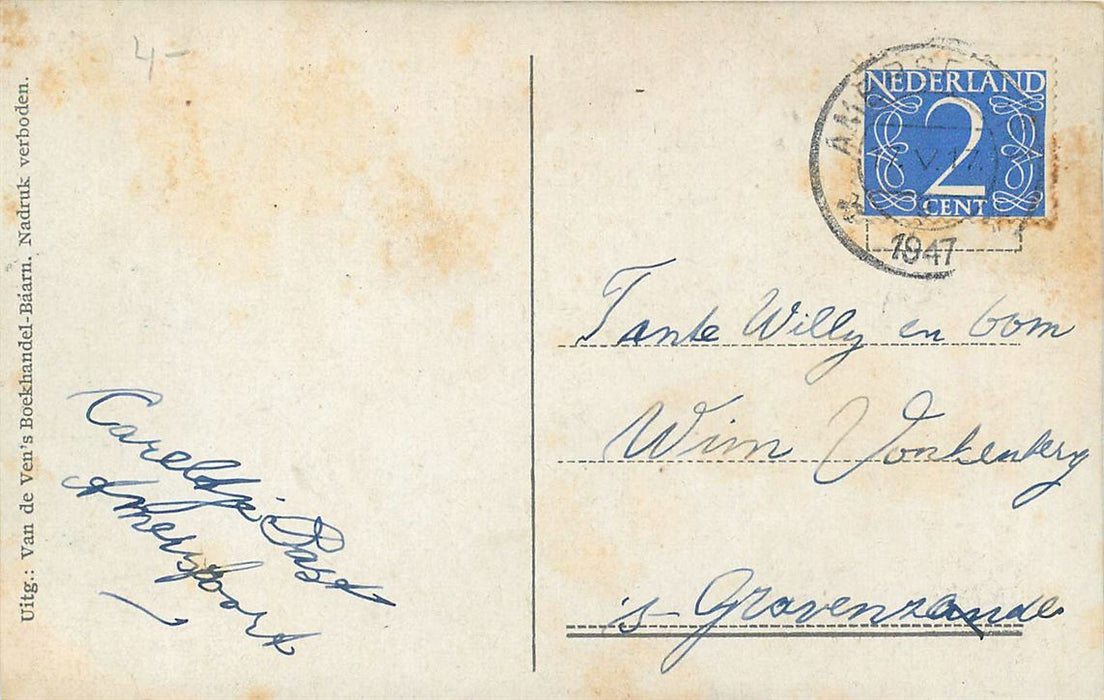 4-
Uitg.: Van de Ven's Boekhandel-Baarn. Nadruk verboden.
NEDERLAND
2
CENT
1947
Tante Willy en oom
Wim Vonkenberg
's-Gravenzande
Careltje Bast
Amersfoort